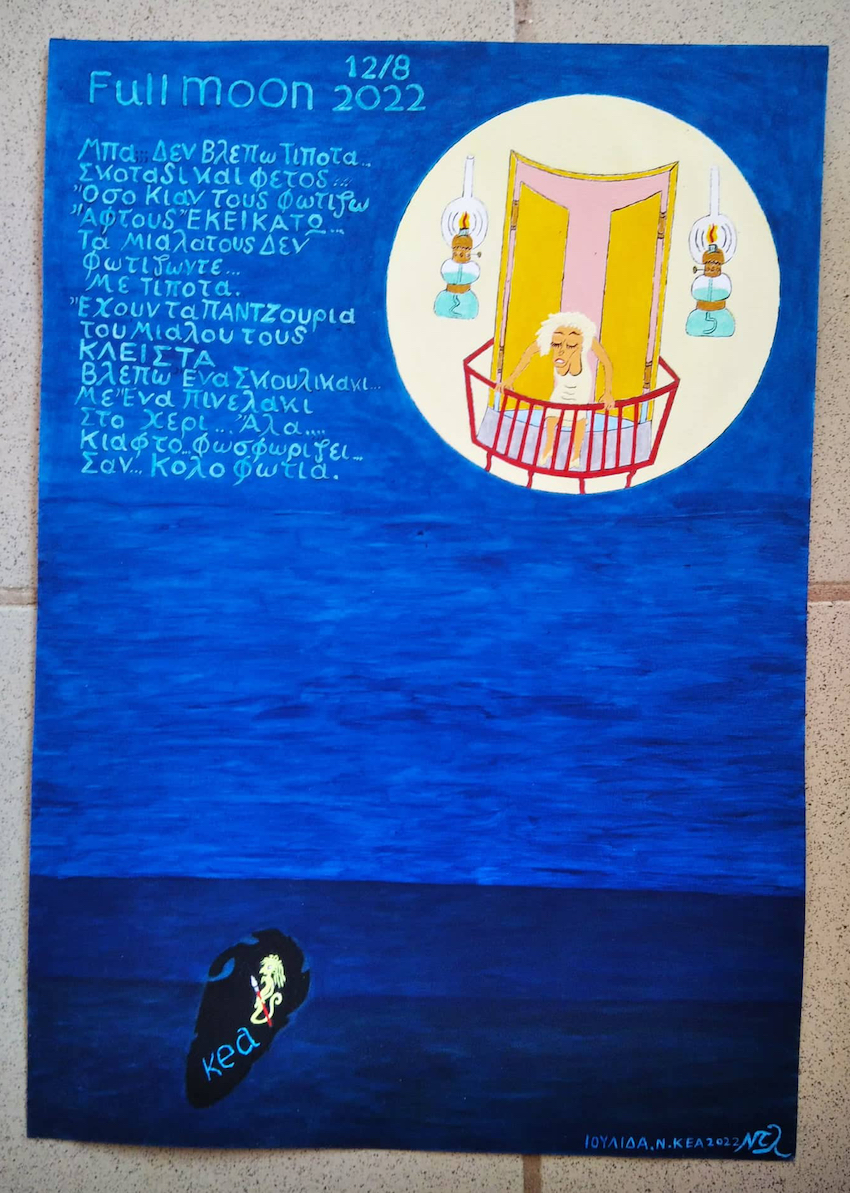 Full moon 12/8
2022
Μπα... Δεν Βλεπω Τιποτα...
Σκοταδι και φετος...
Όσο Κιαν τους φωτιζω
Άφτους ΈΚΕΙΚΑΤΟ...
Τα μιαλατους Δεν
φωτιζωντε...
Με τιποτα.
Έχουν τα ΠΑΝΤΖουρια
του Μιαλου τους
ΚΛΕΙΣΤΑ
Βλεπω Ένα Σκουλικακι...
Με Ένα πινελακι
Στο χερι... Άλα....
Κιαφτο.. φωσφωριζει...
Σαν... Κολο φωτια.
κea
ΙΟΥΛΙΔΑ. Ν. ΚΕΑ 2022